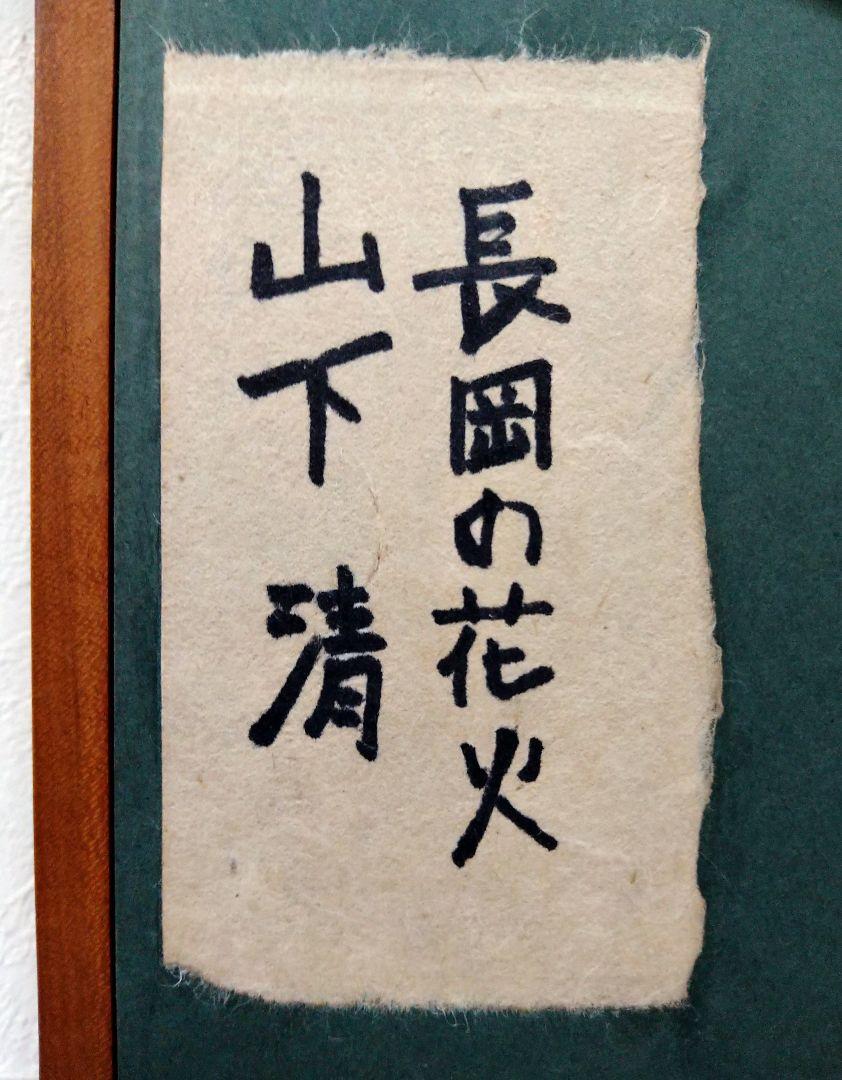 長岡の花火
山下 清